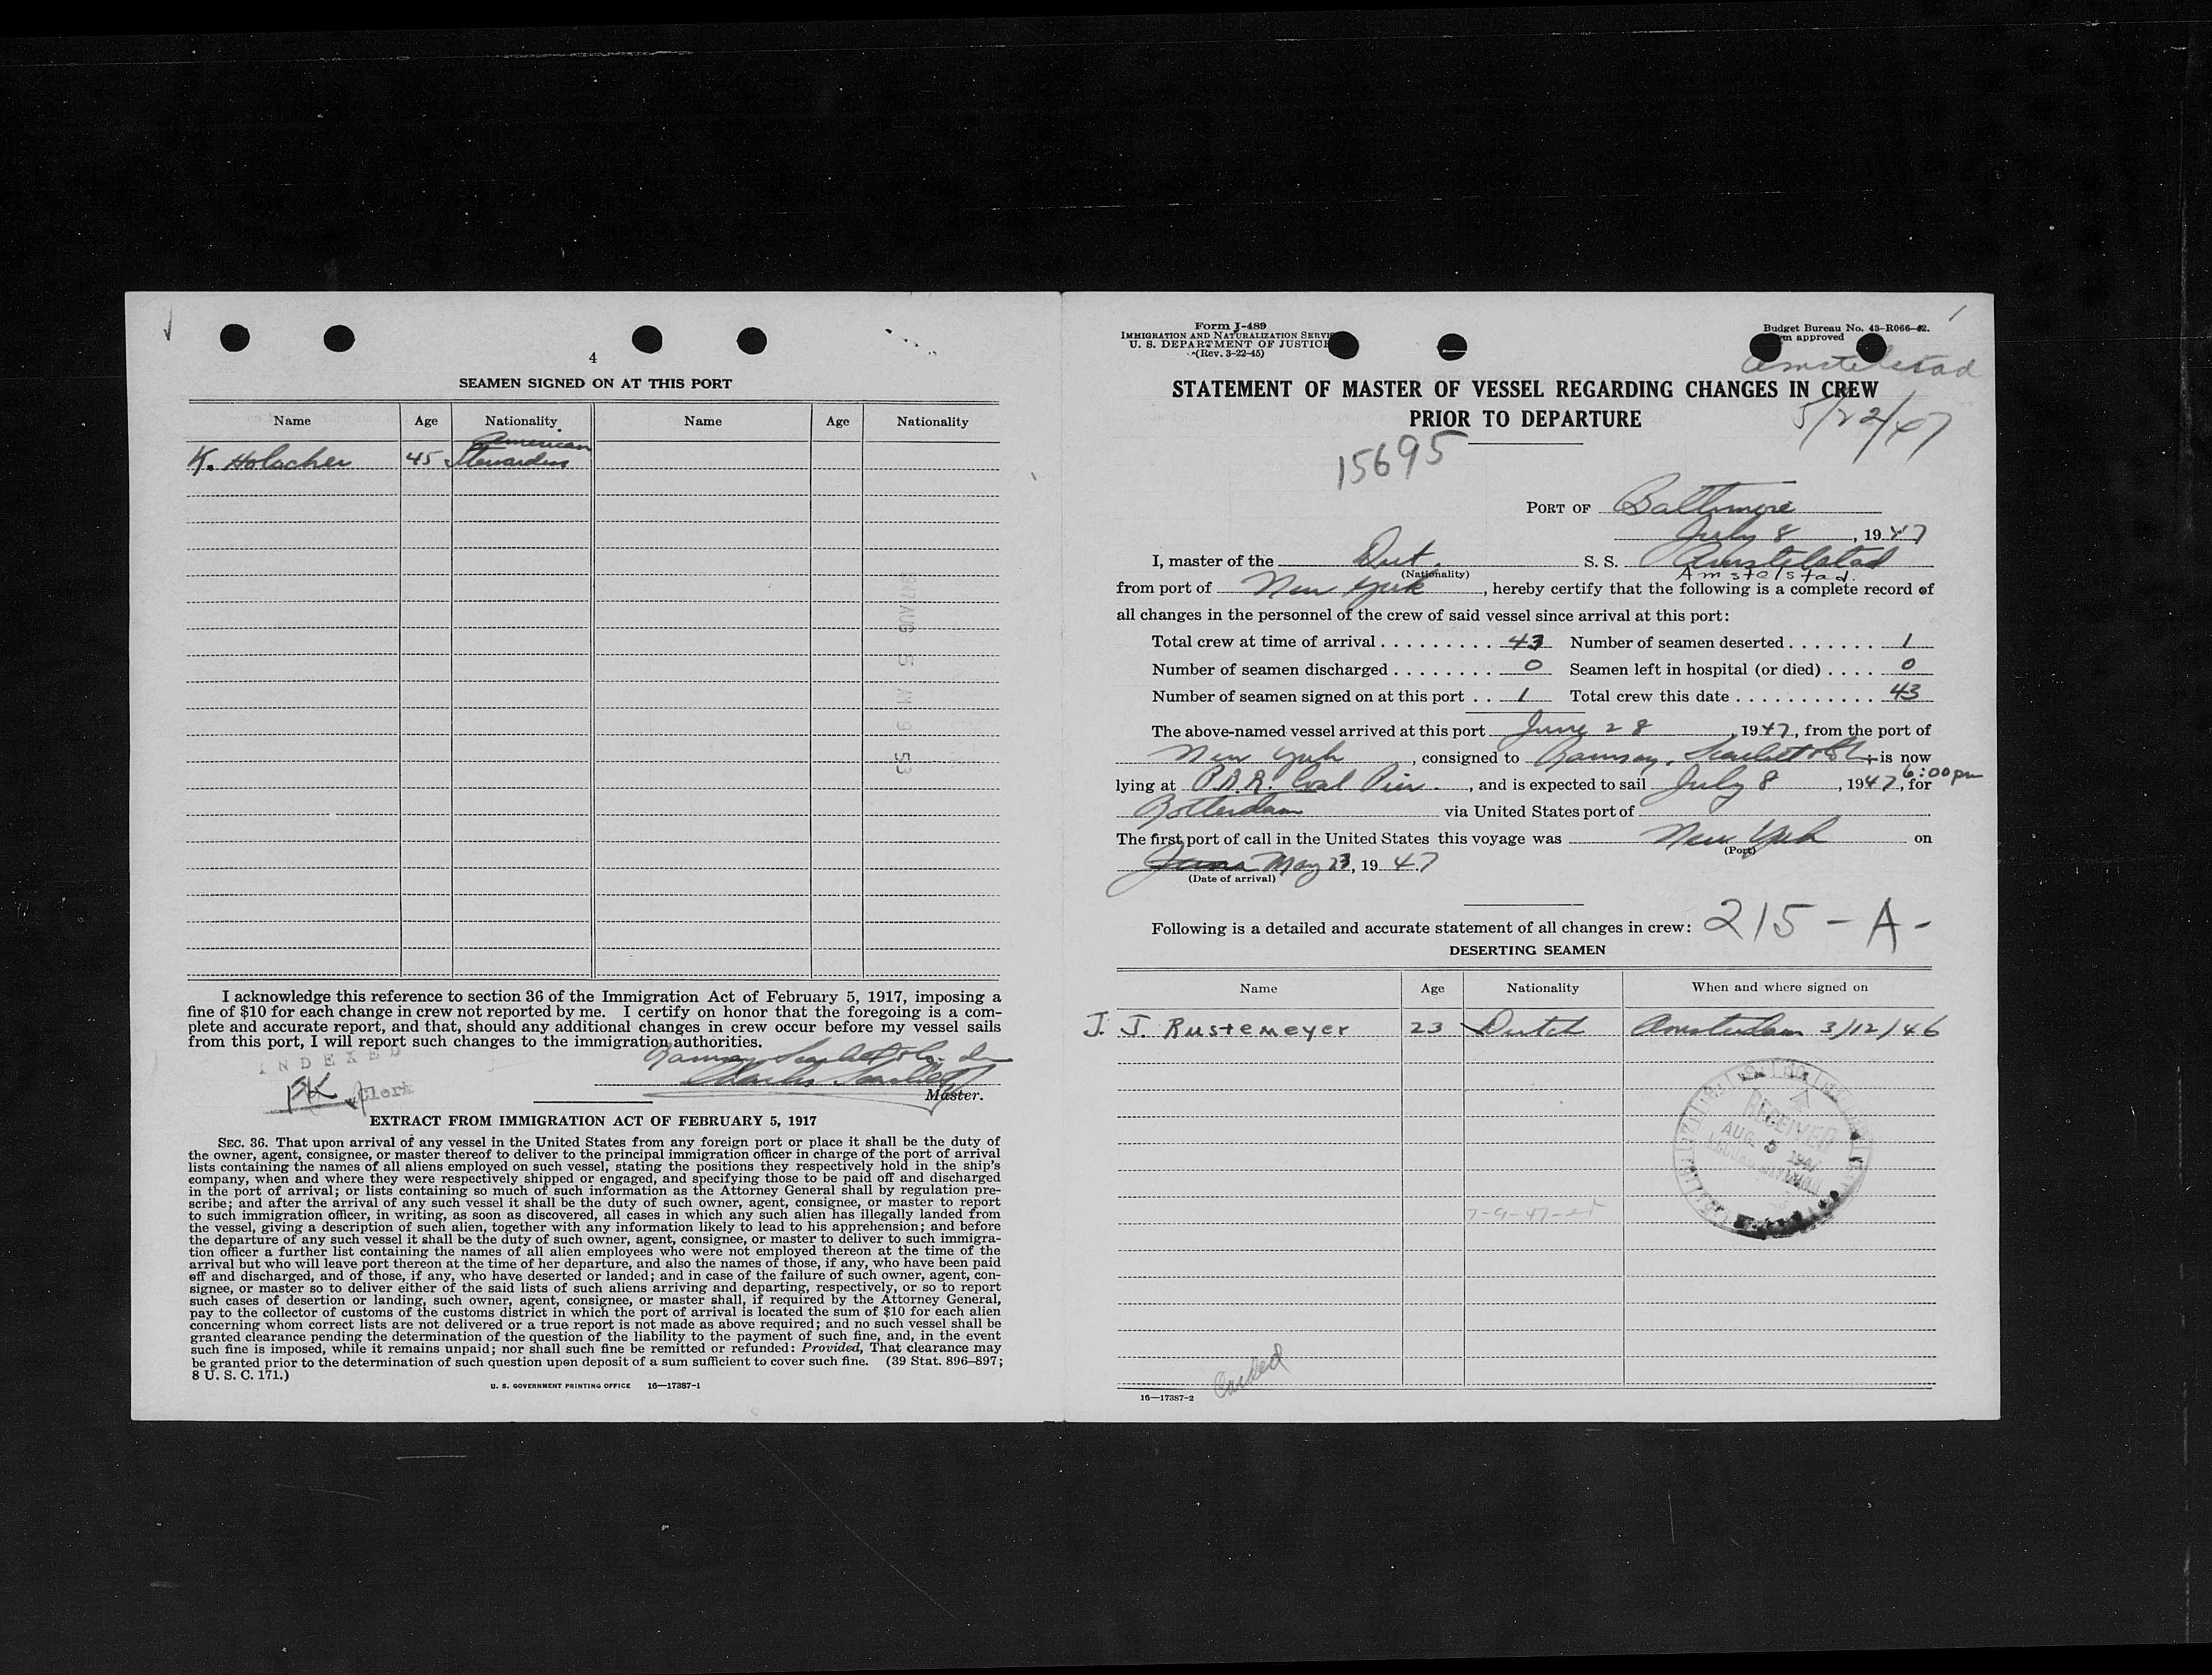 4
SEAMEN SIGNED ON AT THIS PORT
Name Age Nationality Name Age Nationality
American
K. Holscher 45 Stewardess
1947 AUG 5 AM 9 53
I acknowledge this reference to section 36 of the Immigration Act of February 5, 1917, imposing a
fine of $10 for each change in crew not reported by me. I certify on honor that the foregoing is a com-
plete and accurate report, and that, should any additional changes in crew occur before my vessel sails
from this port, I will report such changes to the immigration authorities.
INDEXED
Ramsay Scarlett & Co.
Charles Scarlett
Clerk
Master.
EXTRACT FROM IMMIGRATION ACT OF FEBRUARY 5, 1917
SEC. 36. That upon arrival of any vessel in the United States from any foreign port or place it shall be the duty of
the owner, agent, consignee, or master thereof to deliver to the principal immigration officer in charge of the port of arrival
lists containing the names of all aliens employed on such vessel, stating the positions they respectively hold in the ship's
company, when and where they were respectively shipped or engaged, and specifying those to be paid off and discharged
in the port of arrival; or lists containing so much of such information as the Attorney General shall by regulation pre-
scribe; and after the arrival of any such vessel it shall be the duty of such owner, agent, consignee, or master to report
to such immigration officer, in writing, as soon as discovered, all cases in which any such alien has illegally landed from
the vessel, giving a description of such alien, together with any information likely to lead to his apprehension; and before
the departure of any such vessel it shall be the duty of such owner, agent, consignee, or master to deliver to such immigra-
tion officer a further list containing the names of all alien employees who were not employed thereon at the time of the
arrival but who will leave port thereon at the time of her departure, and also the names of those, if any, who have been paid
off and discharged, and of those, if any, who have deserted or landed; and in case of the failure of such owner, agent, con-
signee, or master so to deliver either of the said lists of such aliens arriving and departing, respectively, or so to report
such cases of desertion or landing, such owner, agent, consignee, or master shall, if required by the Attorney General,
pay to the collector of customs of the customs district in which the port of arrival is located the sum of $10 for each alien
concerning whom correct lists are not delivered or a true report is not made as above required; and no such vessel shall be
granted clearance pending the determination of the question of the liability to the payment of such fine, and, in the event
such fine is imposed, while it remains unpaid; nor shall such fine be remitted or refunded: Provided, That clearance may
be granted prior to the determination of such question upon deposit of a sum sufficient to cover such fine. (39 Stat. 896–897;
8 U. S. C. 171.)
U. S. GOVERNMENT PRINTING OFFICE 16—17387-1
Form I-489
IMMIGRATION AND NATURALIZATION SERVICE
U. S. DEPARTMENT OF JUSTICE
(Rev. 3-22-45)
Budget Bureau No. 43-R066-42.
approved
Amstelstad
STATEMENT OF MASTER OF VESSEL REGARDING CHANGES IN CREW
PRIOR TO DEPARTURE
5/22/47
15695
PORT OF Baltimore
July 8, 1947
I, master of the Dut. S. S. Amstelstad
(Nationality) Amstelstad.
from port of New York, hereby certify that the following is a complete record of
all changes in the personnel of the crew of said vessel since arrival at this port:
Total crew at time of arrival . . . . . . . . . . 43 Number of seamen deserted . . . . . . . 1
Number of seamen discharged . . . . . . . . 0 Seamen left in hospital (or died) . . . . 0
Number of seamen signed on at this port . . 1 Total crew this date . . . . . . . . . . . . 43
The above-named vessel arrived at this port June 28, 1947, from the port of
New York, consigned to Ramsay, Scarlett & Co.; is now
lying at P.R.R. Coal Pier., and is expected to sail July 8, 1947, 6:00 pm for
Rotterdam via United States port of
The first port of call in the United States this voyage was New York on
(Port)
May 23, 1947
(Date of arrival)
Following is a detailed and accurate statement of all changes in crew: 215-A-
DESERTING SEAMEN
Name Age Nationality When and where signed on
J. J. Rustemeyer 23 Dutch Amsterdam 3/12/46
RECEIVED
AUG 5 1947
7-9-47
Carded
16—17387-2